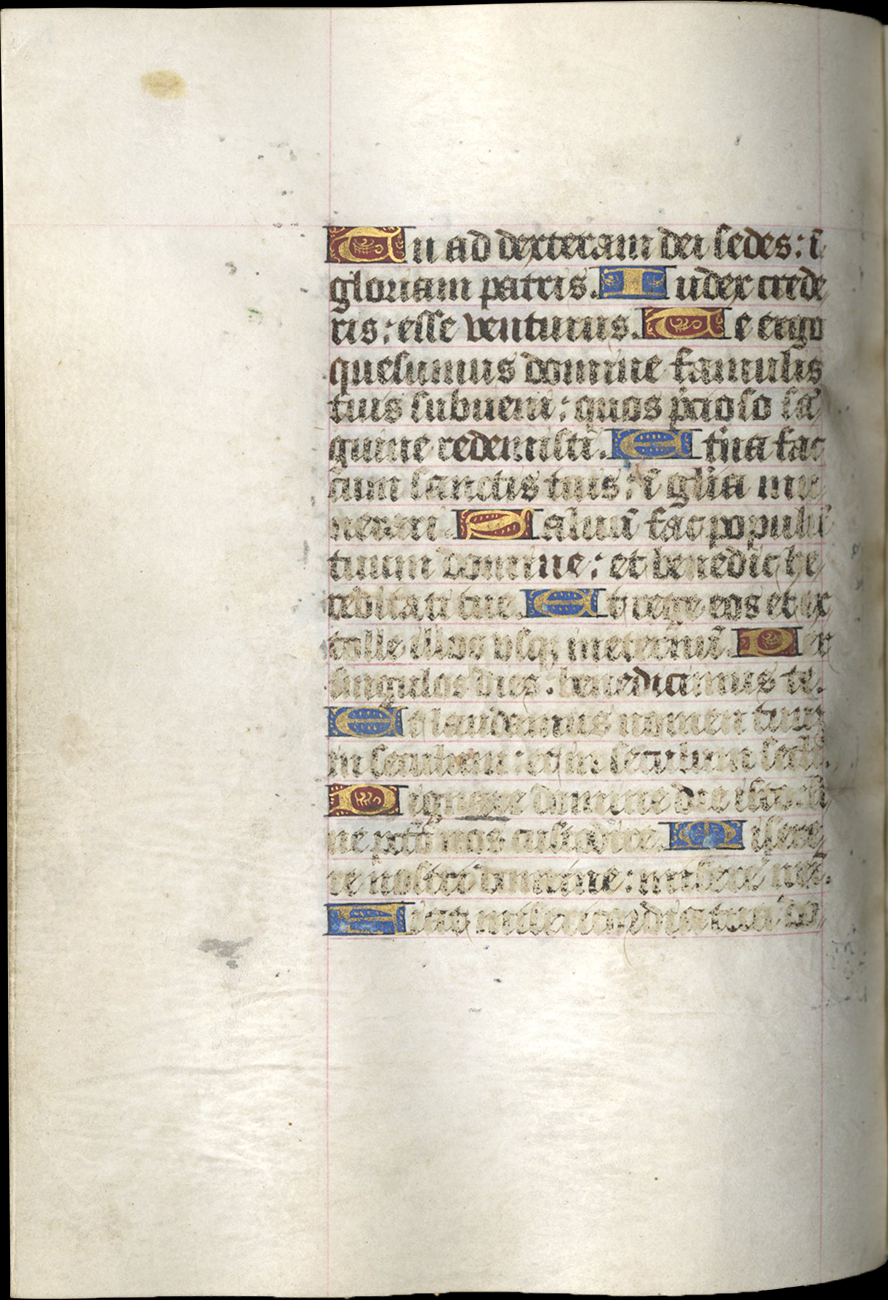 Tu ad dexteram dei sedes: ī
gloriam patris. Iudex crede
ris: esse venturus. Te ergo
quesumus domine famulis
tuis subueni: quos p̄cioso sā
guine redemisti. Etn̄a fac
cum sanctis tuis: ī gl̄ia mu
nerari. Saluū fac populū
tuum domine: et benedic he
reditati tue. Et rege eos et ex
tolle illos vsq; in eternū. Per
singulos dies: benedicimus te.
Et laudamus nomen tuū:
in seculum: et in seculum secli.
Dignare domine die isto: si
ne pctō nos custodire. Misere
re nostri domine: misere nr̄i.
Fiat misericordia tua